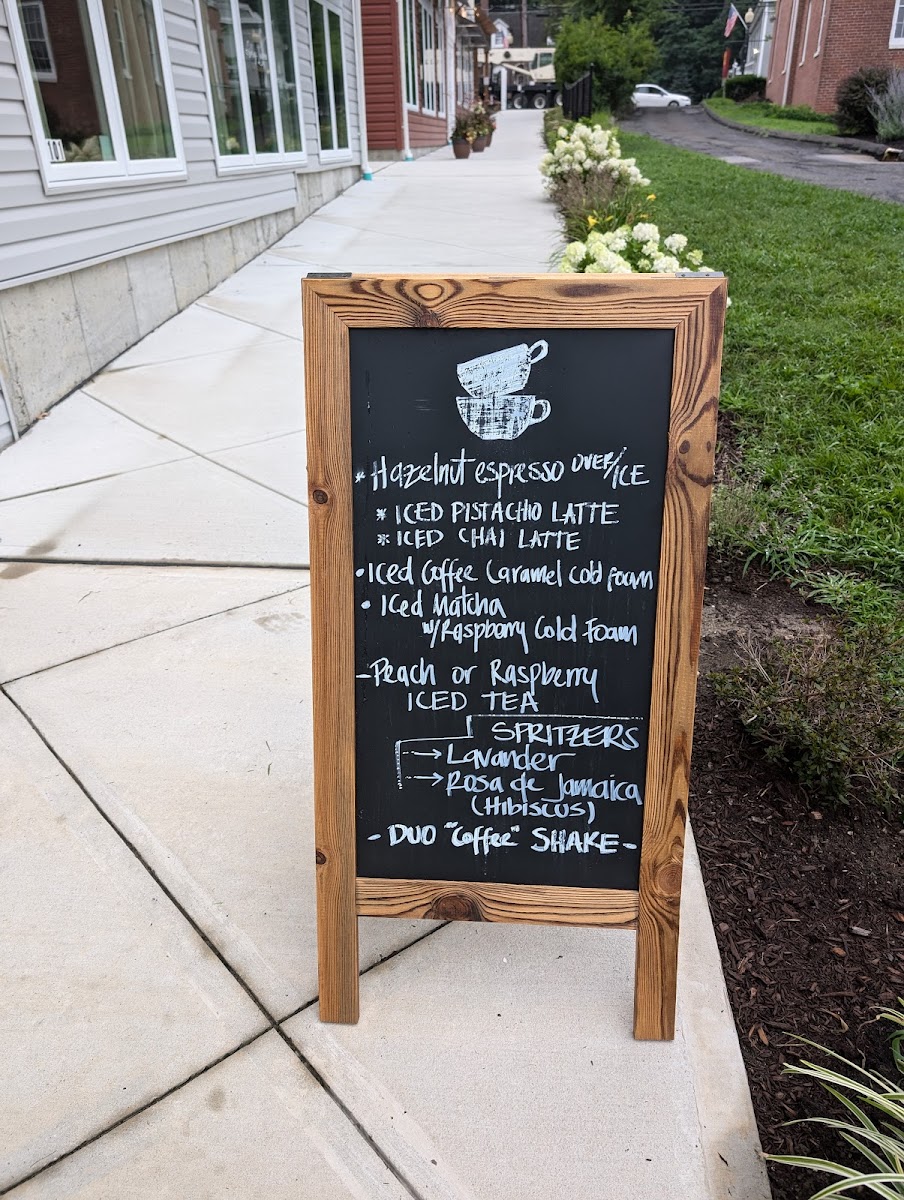 * Hazelnut espresso OVER/ICE
* ICED PISTACHIO LATTE
* ICED CHAI LATTE
• Iced Coffee Caramel cold foam
• Iced Matcha
w/Raspberry Cold Foam
- Peach or Raspberry
ICED TEA
SPRITZERS
→ Lavander
→ Rosa de Jamaica
(Hibiscus)
- DUO "Coffee" SHAKE -